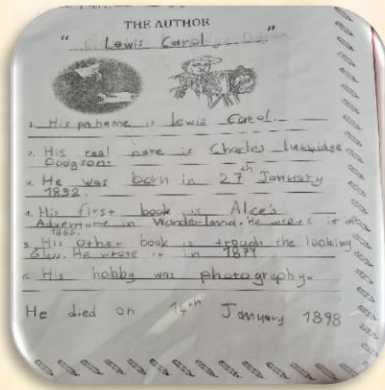 THE AUTHOR
" Lewis Carol "
1. His pename is Lewis Carol.
2. His real name is Charles Lutwidge
Dodgson.
3. He was born in 27th January
1832.
4. His first book is Alice's
Adventure in Wonderland. He wrote it in
1865.
5. His other book is trough the looking
Glass. He wrote it in 1871
6. His hobby was photography.
He died on 14th January 1898